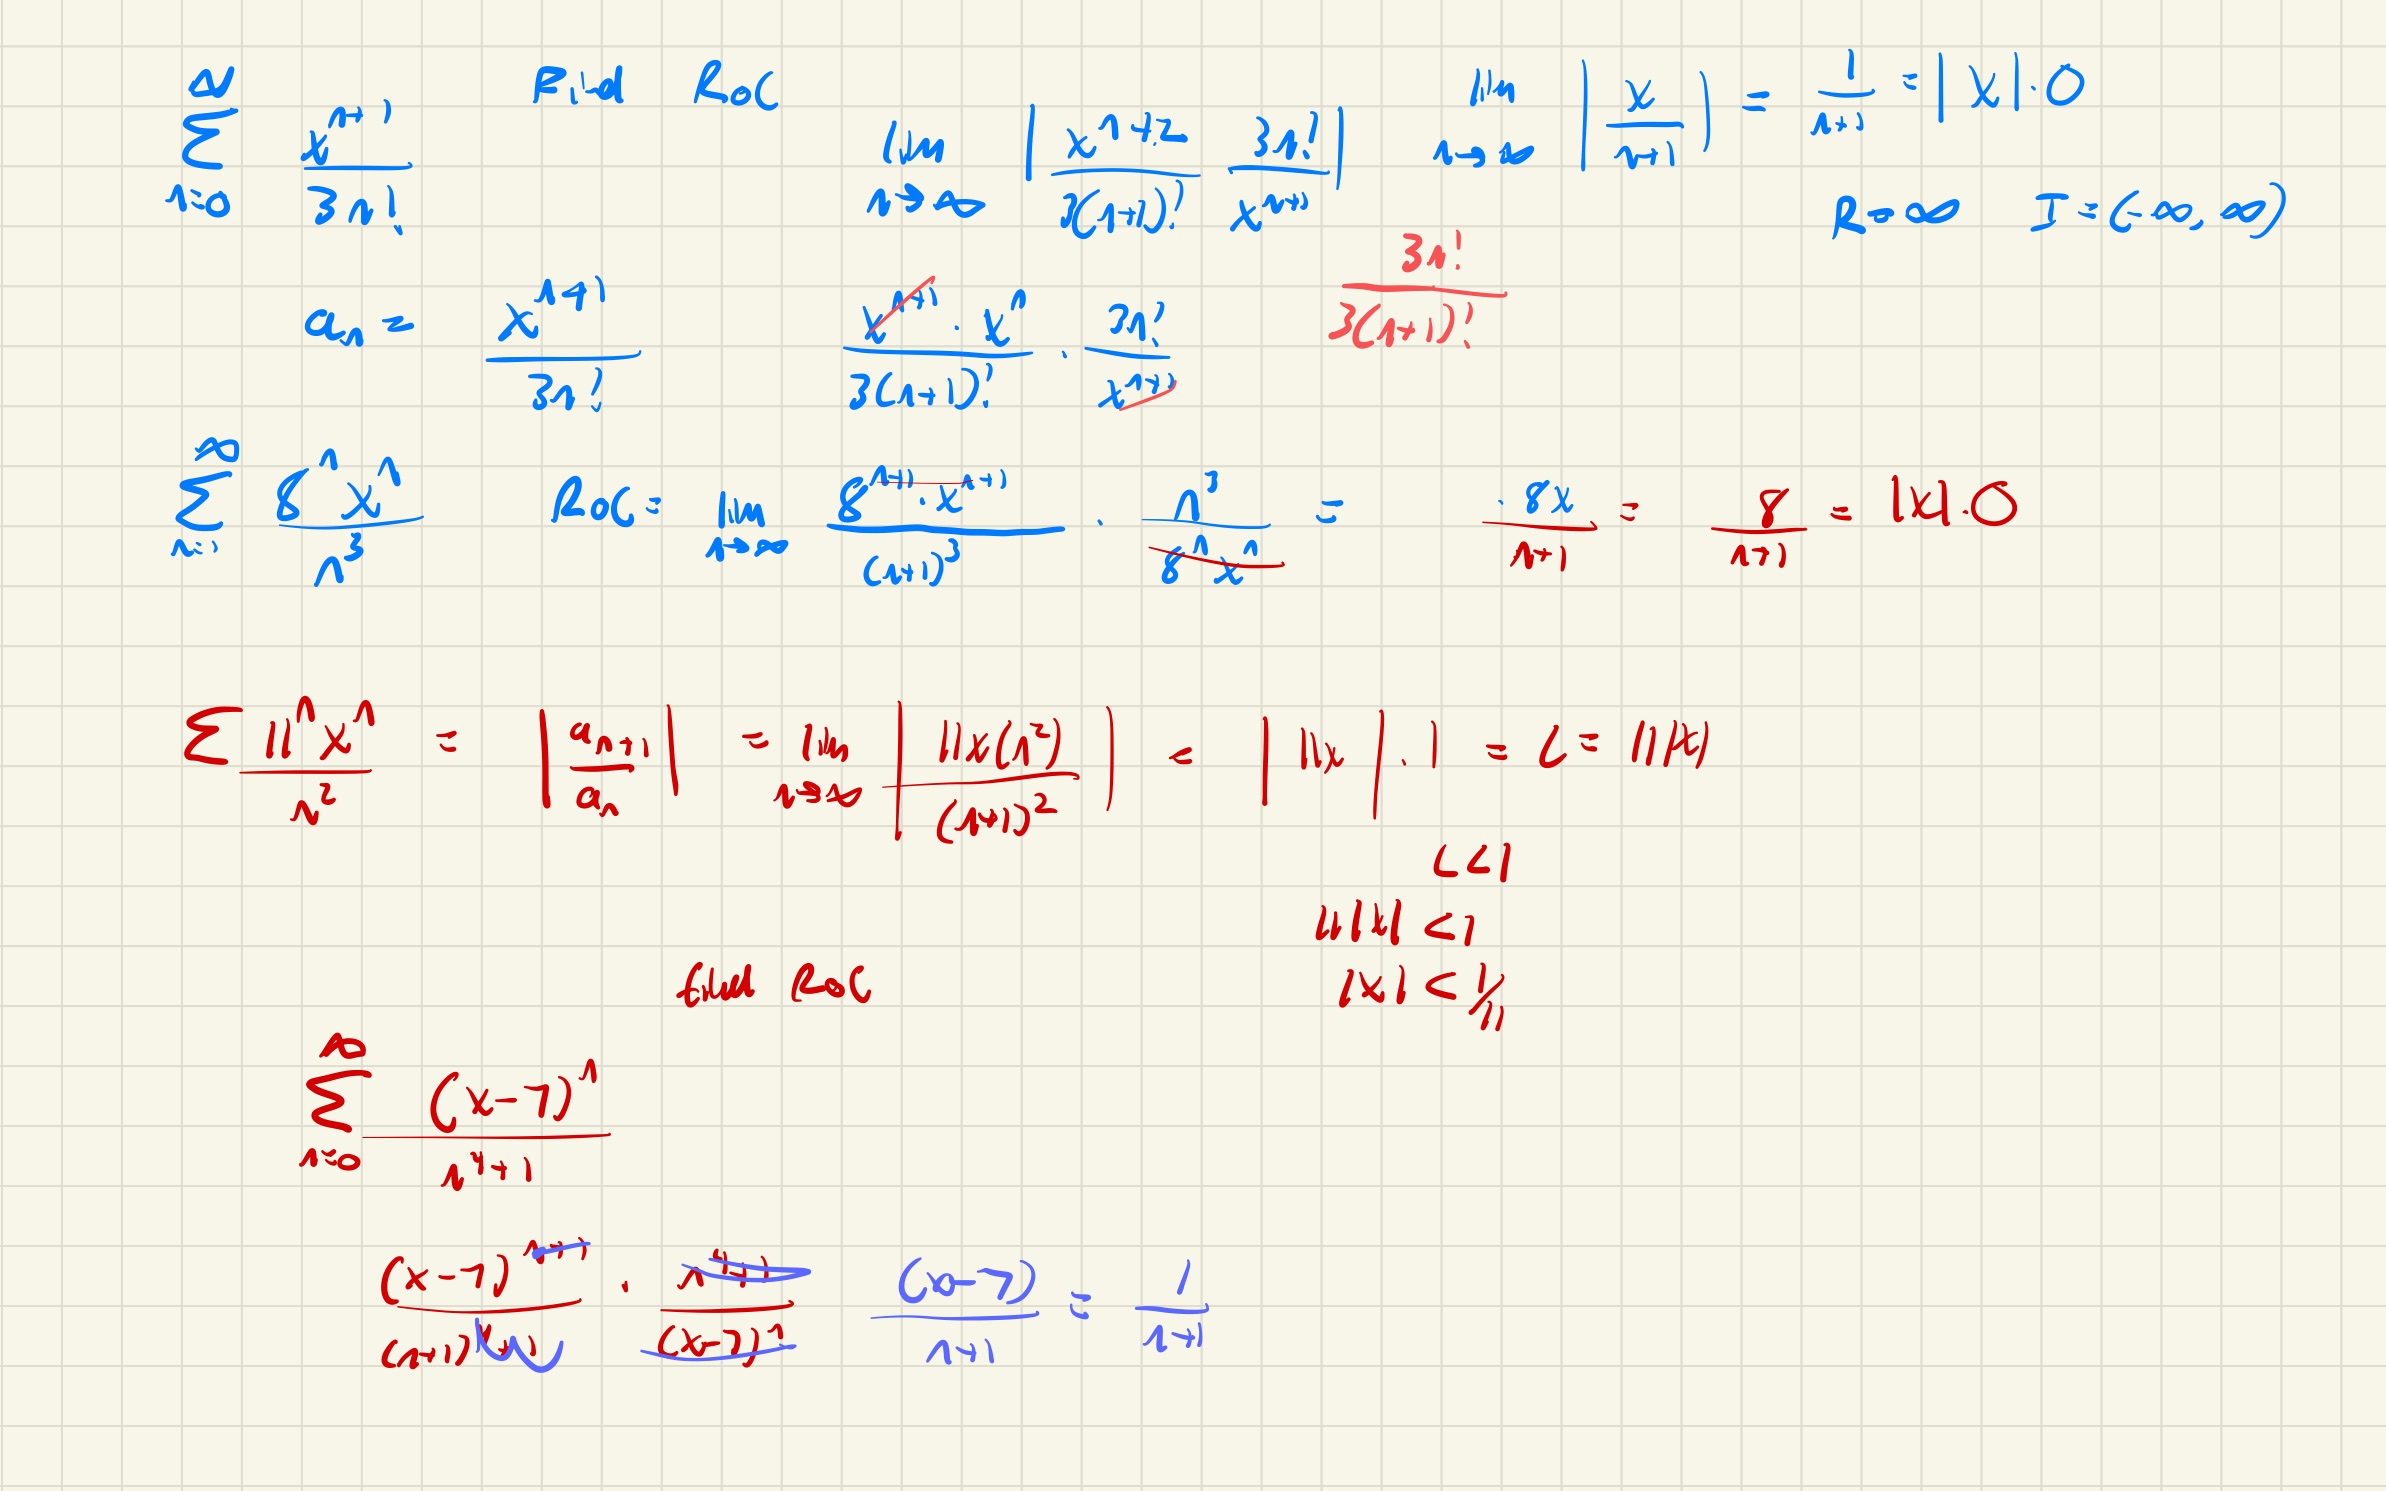 ∞ Σ n=0 x^(n+1) / 3n! Find RoC lim n→∞ | x^(n+2) / 3(n+1)! 3n! / x^(n+1) | lim n→∞ | x / n+1 | = 1 / n+1 = |x|·0
R=∞ I=(-∞, ∞)
3n! / 3(n+1)!
a_n = x^(n+1) / 3n! x^(n+1) · x^n / 3(n+1)! · 3n! / x^(n+1)
∞ Σ n=1 8^n x^n / n^3 RoC = lim n→∞ 8^(n+1) · x^(n+1) / (n+1)^3 · n^3 / 8^n x^n = · 8x / n+1 = 8 / n+1 = |x|·0
Σ 11^n x^n / n^2 = | a_(n+1) / a_n | = lim n→∞ | 11x(n^2) / (n+1)^2 | = | 11x | · 1 = L = 11|x|
L<1
11|x| <1
find RoC |x| < 1/11
∞ Σ n=0 (x-7)^n / n^4+1
(x-7)^(n+1) / (n+1)^4+1 · n^4+1 / (x-7)^n (x-7) / n+1 = 1 / n+1